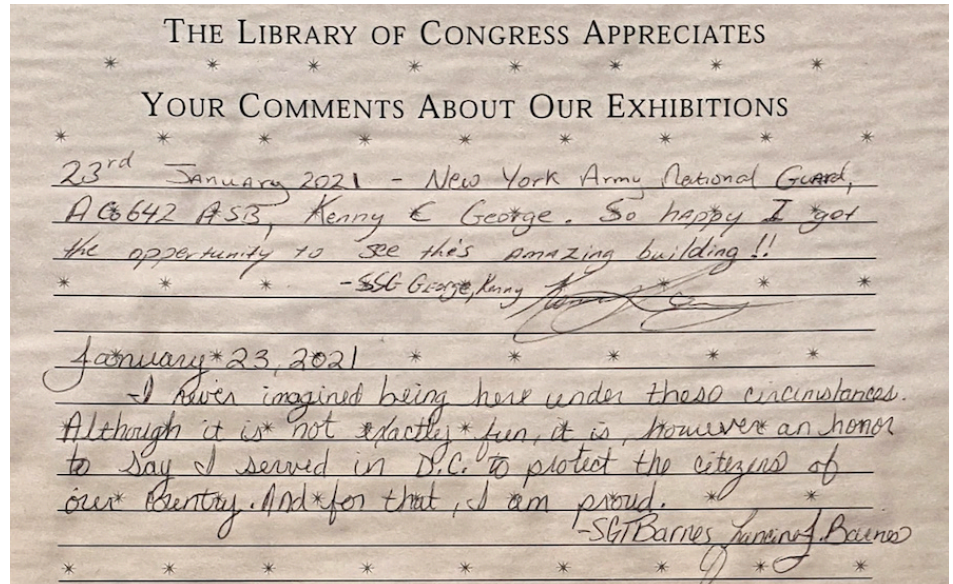 THE LIBRARY OF CONGRESS APPRECIATES
YOUR COMMENTS ABOUT OUR EXHIBITIONS
23rd January 2021 - New York Army National Guard,
A Co 642 ASB, Kenny C George. So happy I got
the opportunity to see this amazing building!!
-SSG George, Kenny
January 23, 2021
I never imagined being here under these circumstances.
Although it is not exactly fun, it is, however an honor
to say I served in D.C. to protect the citezens of
our country. And for that, I am proud.
-SGT Barnes J. Barnes